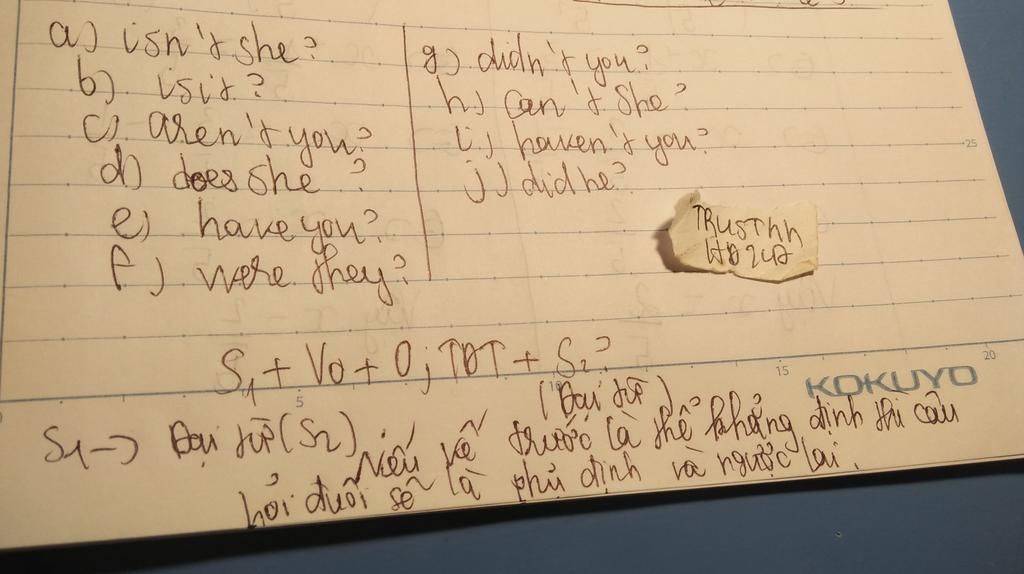 a) isn't she?
b) is it?
c) aren't you?
d) does she?
e) have you?
f) were they?
g) didn't you?
h) can't she?
i) haven't you?
j) did he?
25
TRUSTHh
S1 + Vo + O; TĐT + S2?
5
10
15
20
KOKUYO
(Đại từ)
S1 -> Đại từ (S2)
Nếu vế trước là thể khẳng định thì câu
hỏi đuôi sẽ là phủ định và ngược lại.